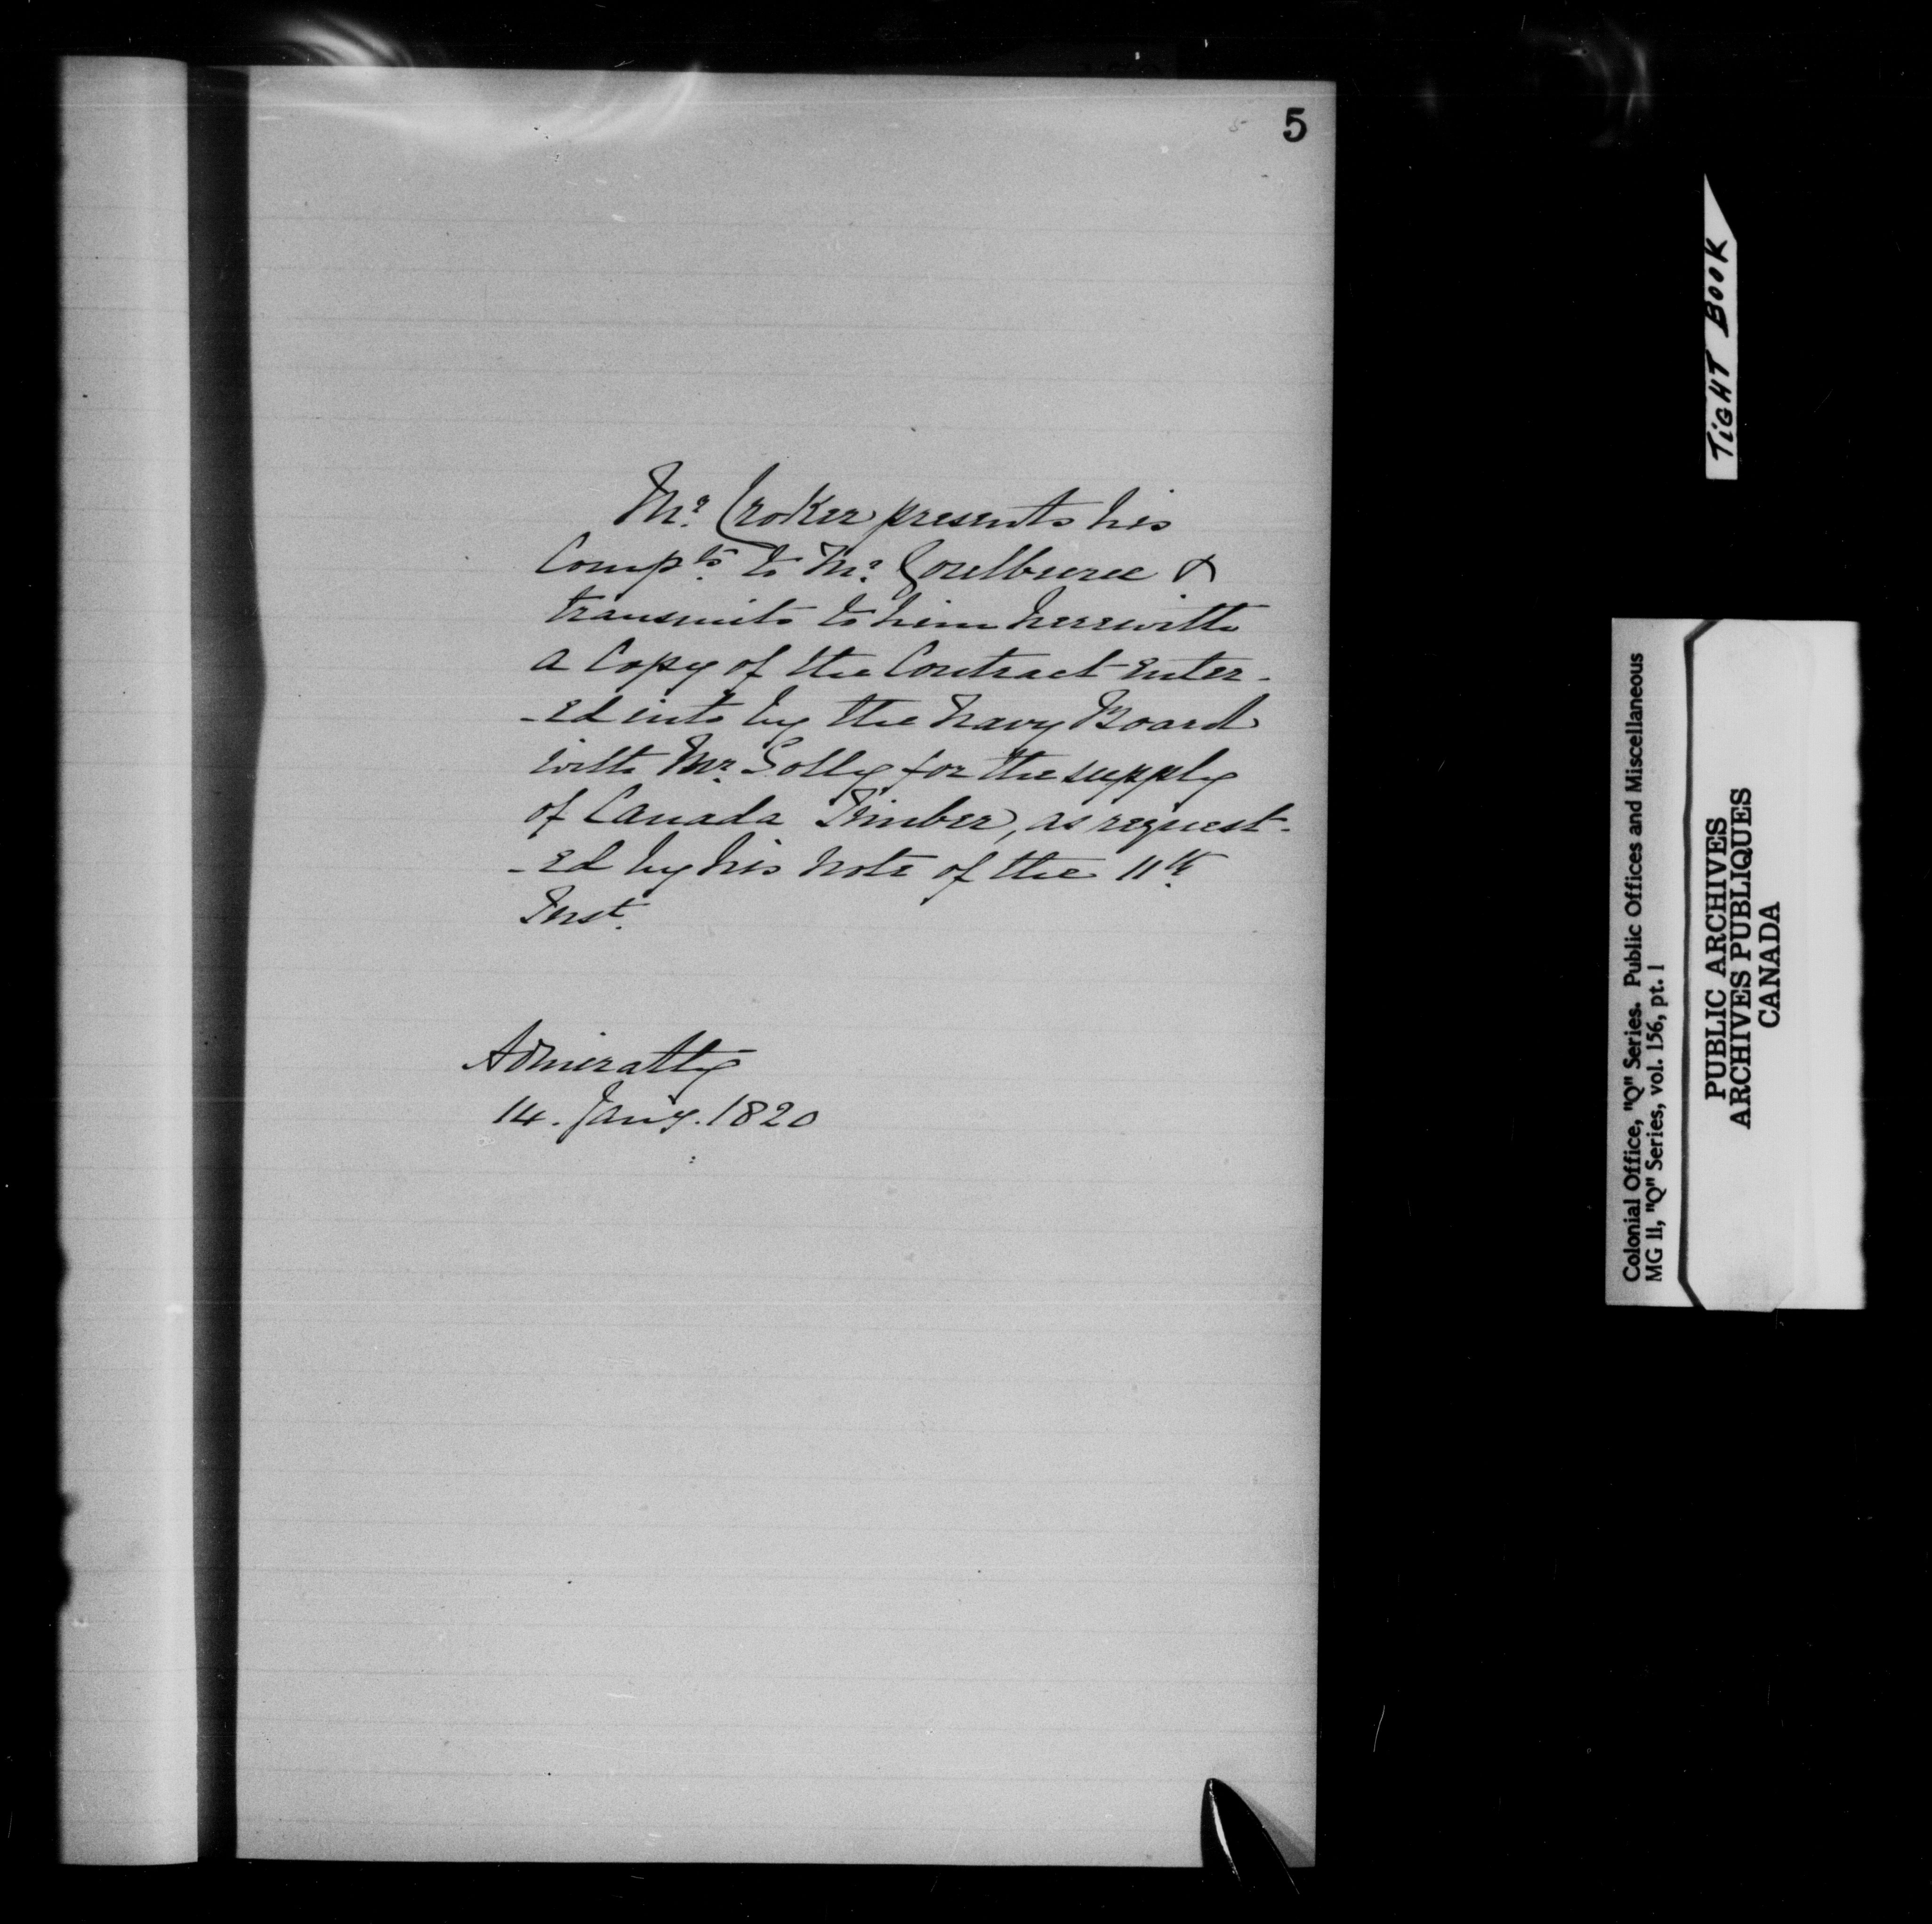 5
Mr. Croker presents his
Compts. to Mr. Goulburne &
transmits to him herewith
a Copy of the Contract enter-
-ed into by the Navy Board
with Mr. Solly for the supply
of Canada Timber, as request-
-ed by his note of the 11th
Inst.
Admiralty
14. Jany. 1820
TIGHT BOOK
Colonial Office, "Q" Series. Public Offices and Miscellaneous
MG 11, "Q" Series, vol. 156, pt. 1
PUBLIC ARCHIVES
ARCHIVES PUBLIQUES
CANADA